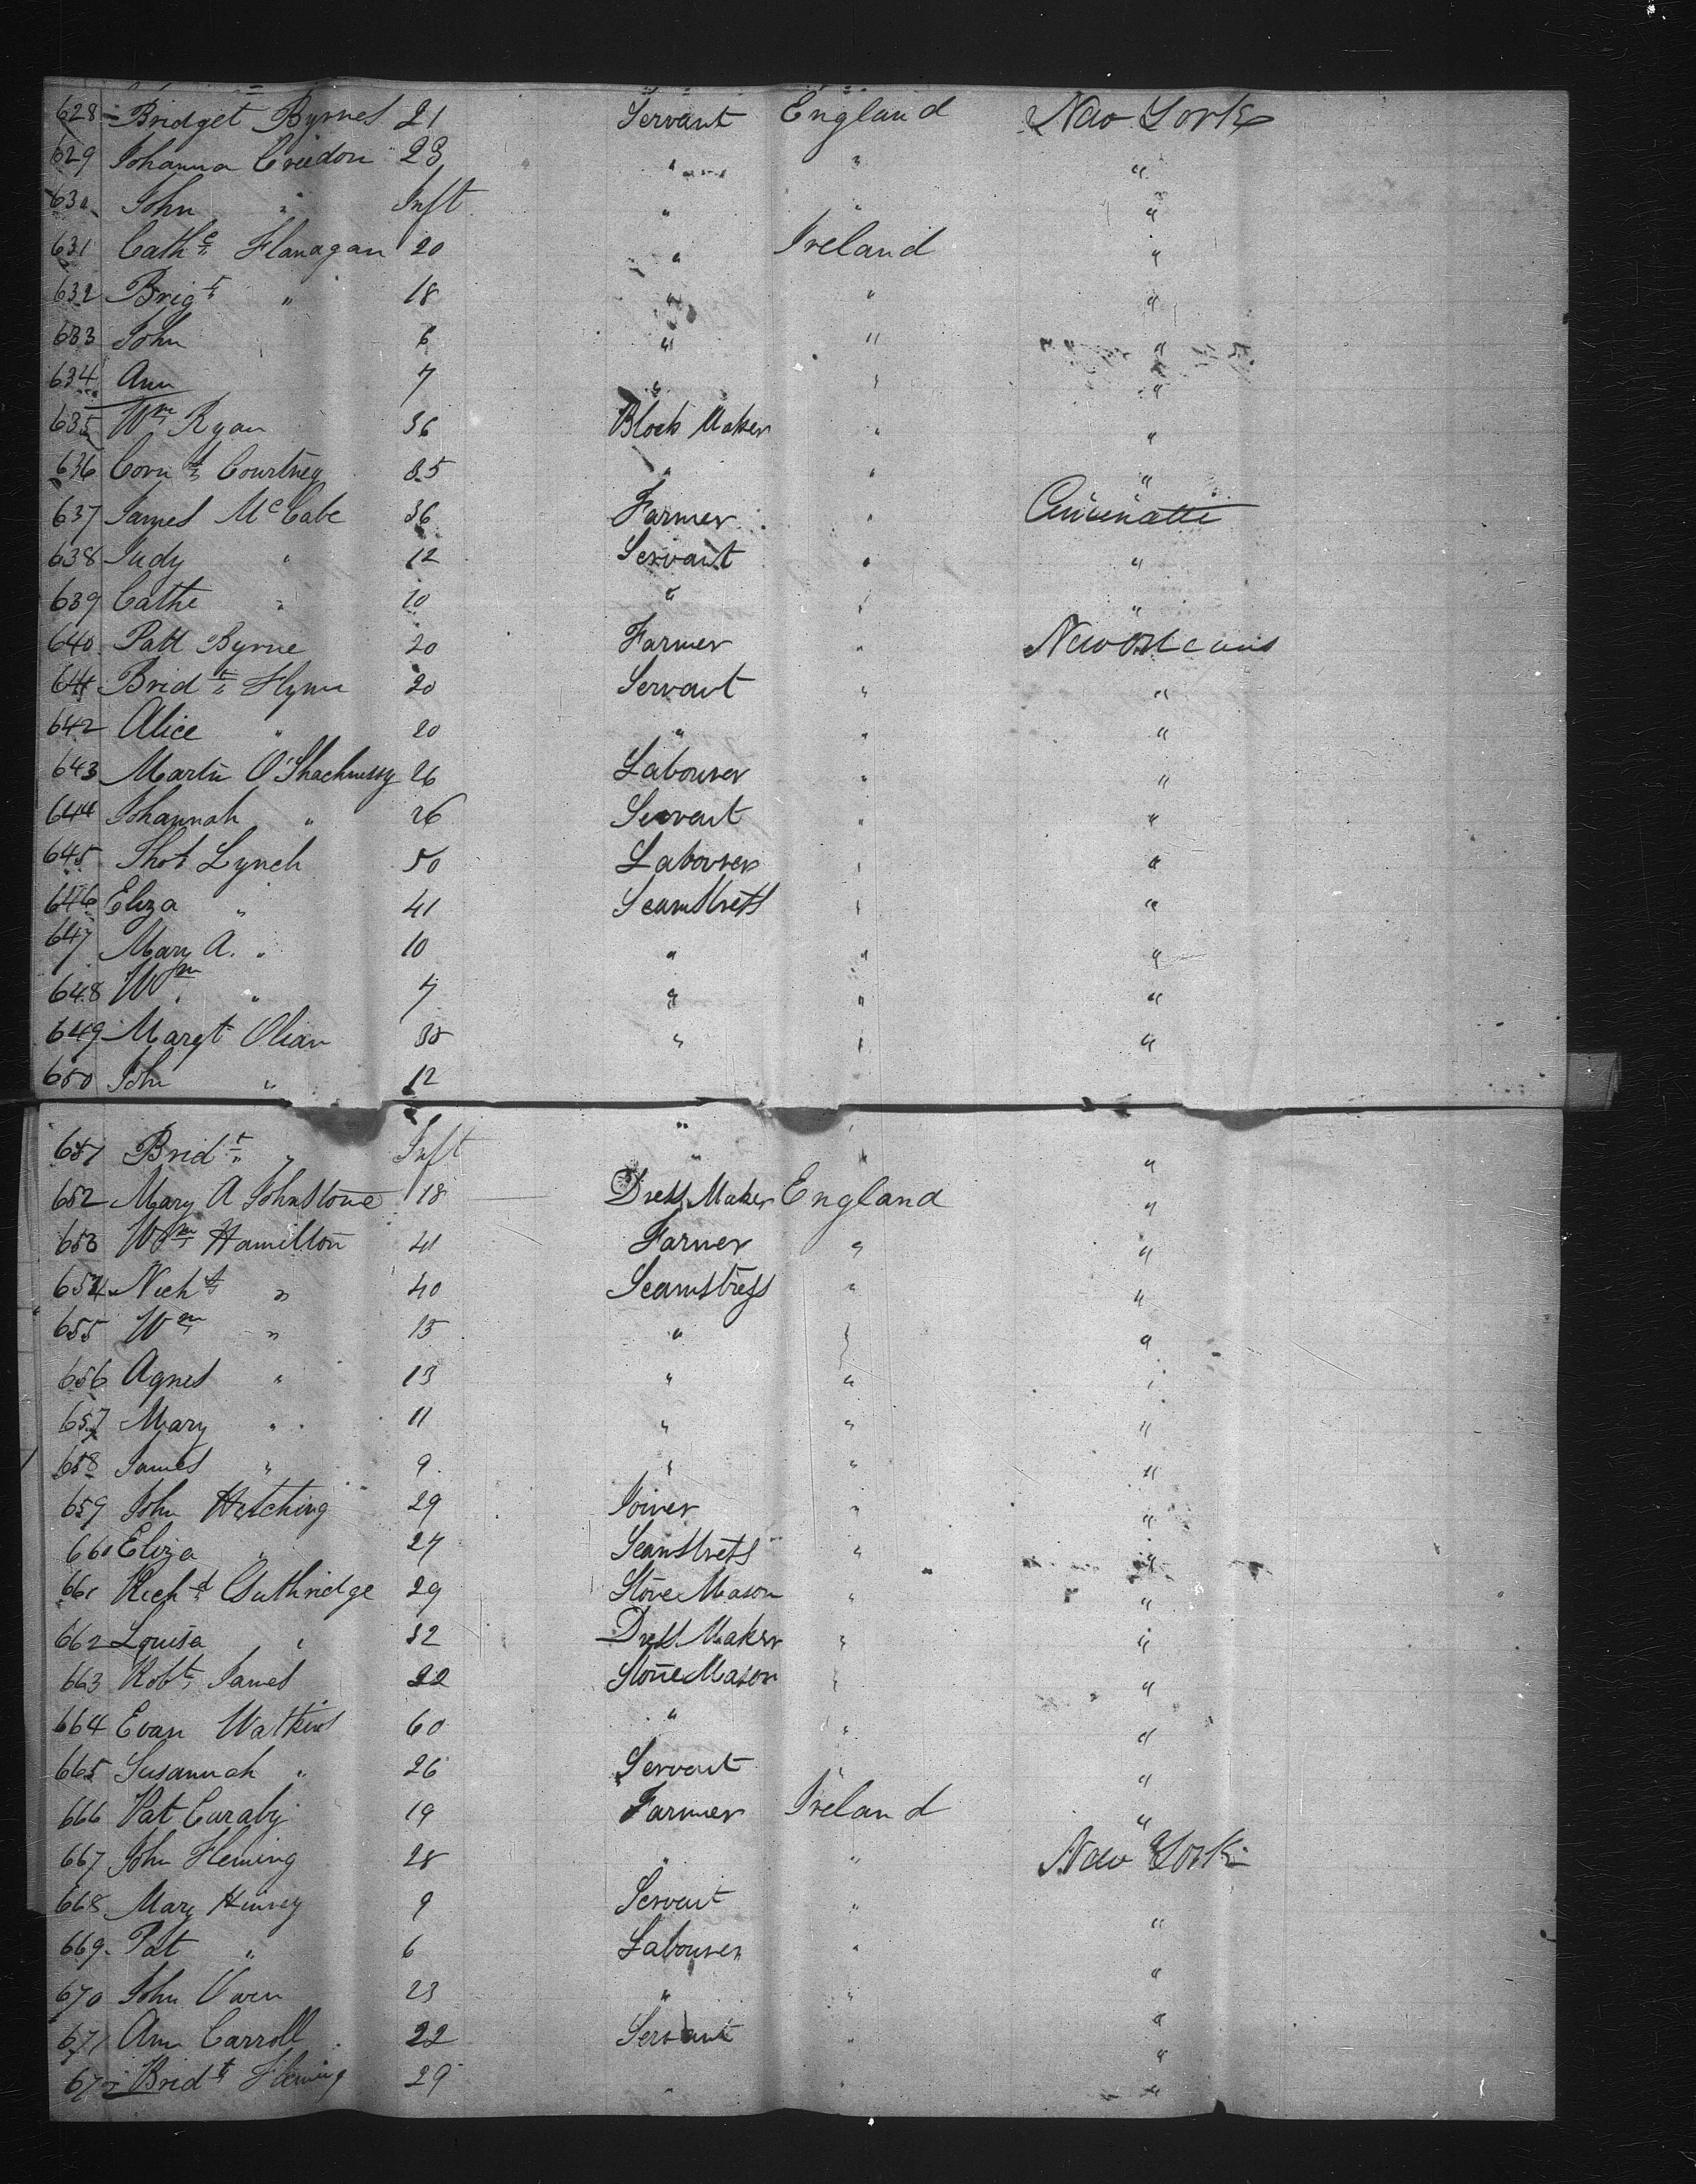 628 Bridget Byrnes 21 Servant England New York
629 Johanna Creedon 23 " " "
630 John " Inft " " "
631 Cathe Flanagan 20 " Ireland "
632 Brigt " 18 " " "
633 John 6 " " "
634 Ann 7 " " "
635 Wm Ryan 36 Block Maker " "
636 Corns Courtney 35 " " "
637 James McCabe 36 Farmer " Cincinatti
638 Judy " 12 Servant " "
639 Cathe " 10 " " "
640 Patt Byrne 20 Farmer " New Orleans
641 Bridt Flynn 20 Servant " "
642 Alice " 20 " " "
643 Martin O'Shachnessy 26 Labourer " "
644 Johannah " 26 Servant " "
645 Thos Lynch 50 Labourer " "
646 Eliza " 41 Seamstress " "
647 Mary A. " 10 " " "
648 Wm " 7 " " "
649 Margt Olean " "
650 John " 12 " "
651 Bridt " Inft " " "
652 Mary A Johnstone 18 Dress Maker England "
653 Wm Hamilton 41 Farmer " "
654 Nichs " 40 Seamstress " "
655 Wm " 15 " " "
656 Agnes " 13 " " "
657 Mary " 11 " " "
658 James " 9 " " "
659 John Hutching 29 Joiner " "
660 Eliza " 27 Seamstress " "
661 Richd Guthridge 29 Stone Mason " "
662 Louisa " 32 Dress Maker " "
663 Robt James 22 Stone Mason " "
664 Evan Watkins 60 " " "
665 Susannah " 26 Servant " "
666 Pat Curaby 19 Farmer Ireland "
667 John Fleming 28 " " New York
668 Mary Hinvey 9 Servant " "
669 Pat " 6 Labourer " "
670 John 23 " " "
671 Ann Carroll 22 Servant " "
672 Bridt Fleming 29 " " "